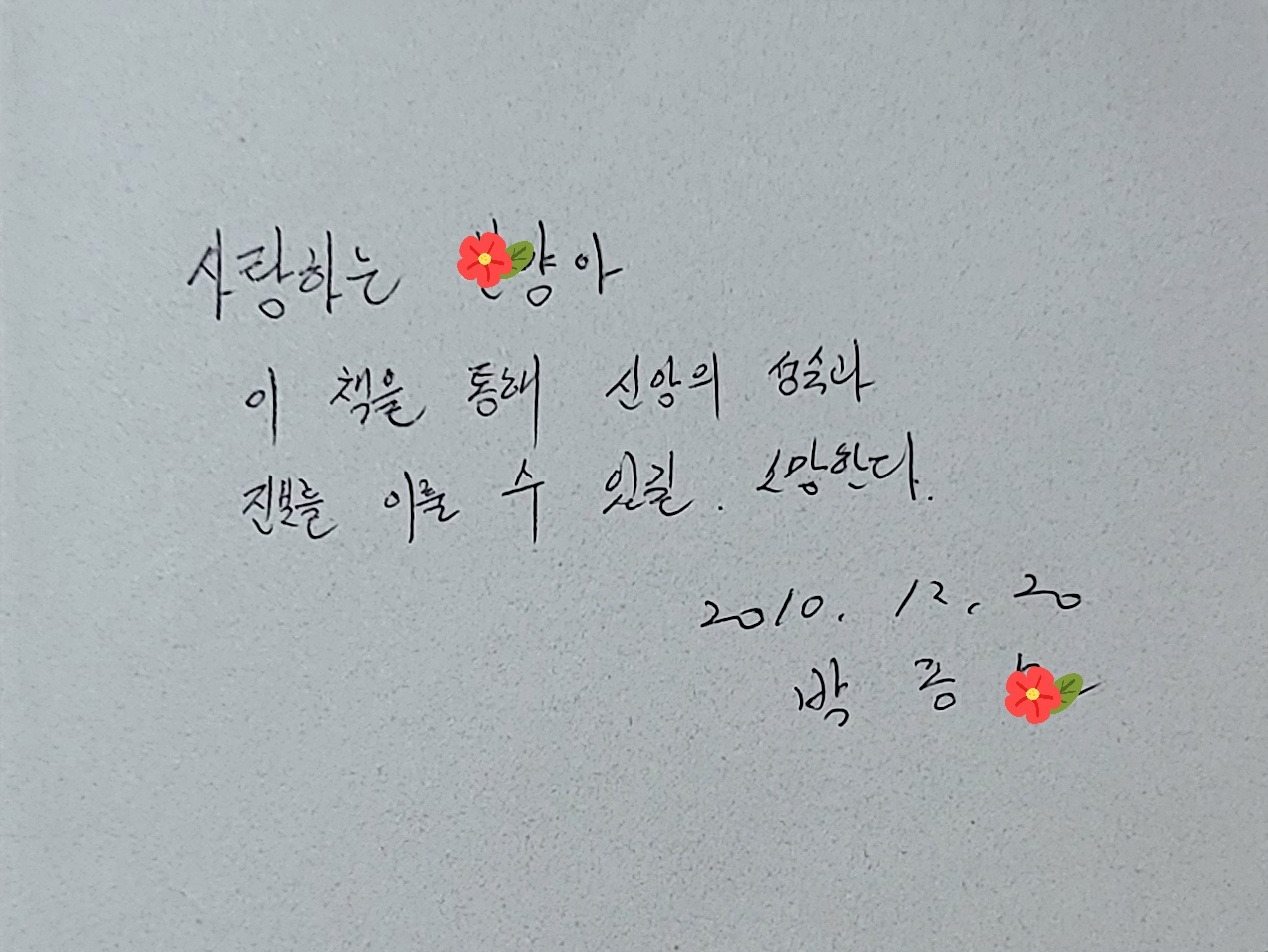 사랑하는 량아
이 책을 통해 신앙의 성숙과
진보를 이룰 수 있길. 소망한다.
2010. 12. 20
박 종